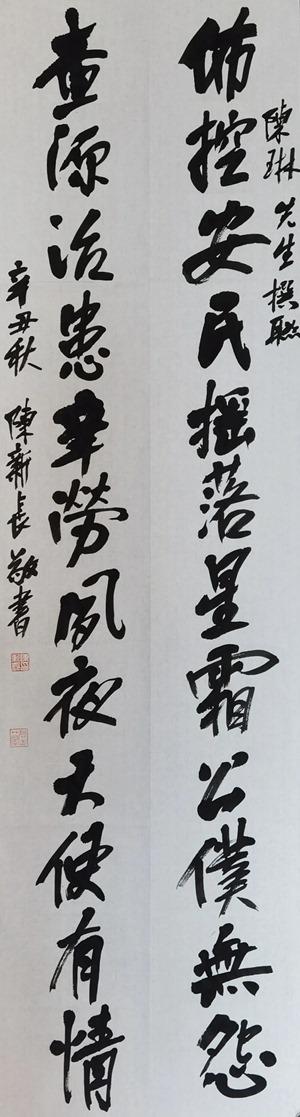 陳琳先生撰聯
佈控安民摇落星霜公僕無怨
查源治患辛勞夙夜天使有情
辛丑秋 陳新長敬書